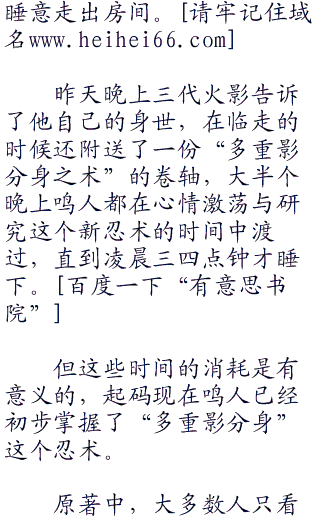 睡意走出房间。[请牢记住域
名www.heihei66.com]
昨天晚上三代火影告诉
了他自己的身世，在临走的
时候还附送了一份“多重影
分身之术”的卷轴，大半个
晚上鸣人都在心情激荡与研
究这个新忍术的时间中渡
过，直到凌晨三四点钟才睡
下。[百度一下“有意思书
院”]
但这些时间的消耗是有
意义的，起码现在鸣人已经
初步掌握了“多重影分身”
这个忍术。
原著中，大多数人只看